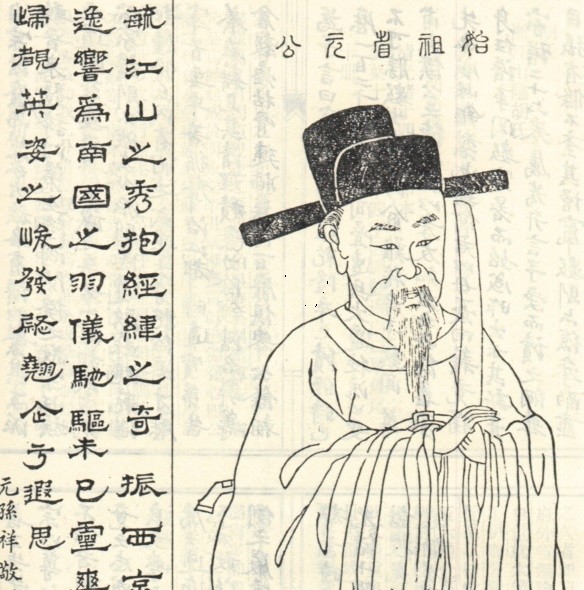 始祖耆元公
毓江山之秀抱經緯之奇振西京
逸響爲南國之羽儀馳驅未已靈爽
歸覩英姿之峻發凝翹企亏遐思
元孫祥敬